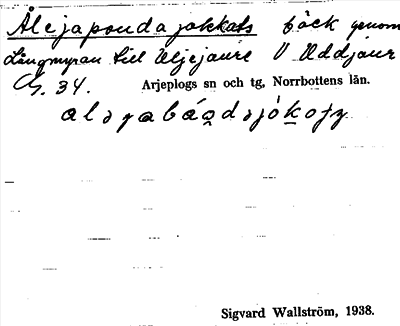 Ålejapouda jokkats bäck genom
Långmyran till Äljejaure V Uddjaur
G. 34. Arjeplogs sn och tg, Norrbottens län.
Sigvard Wallström, 1938.